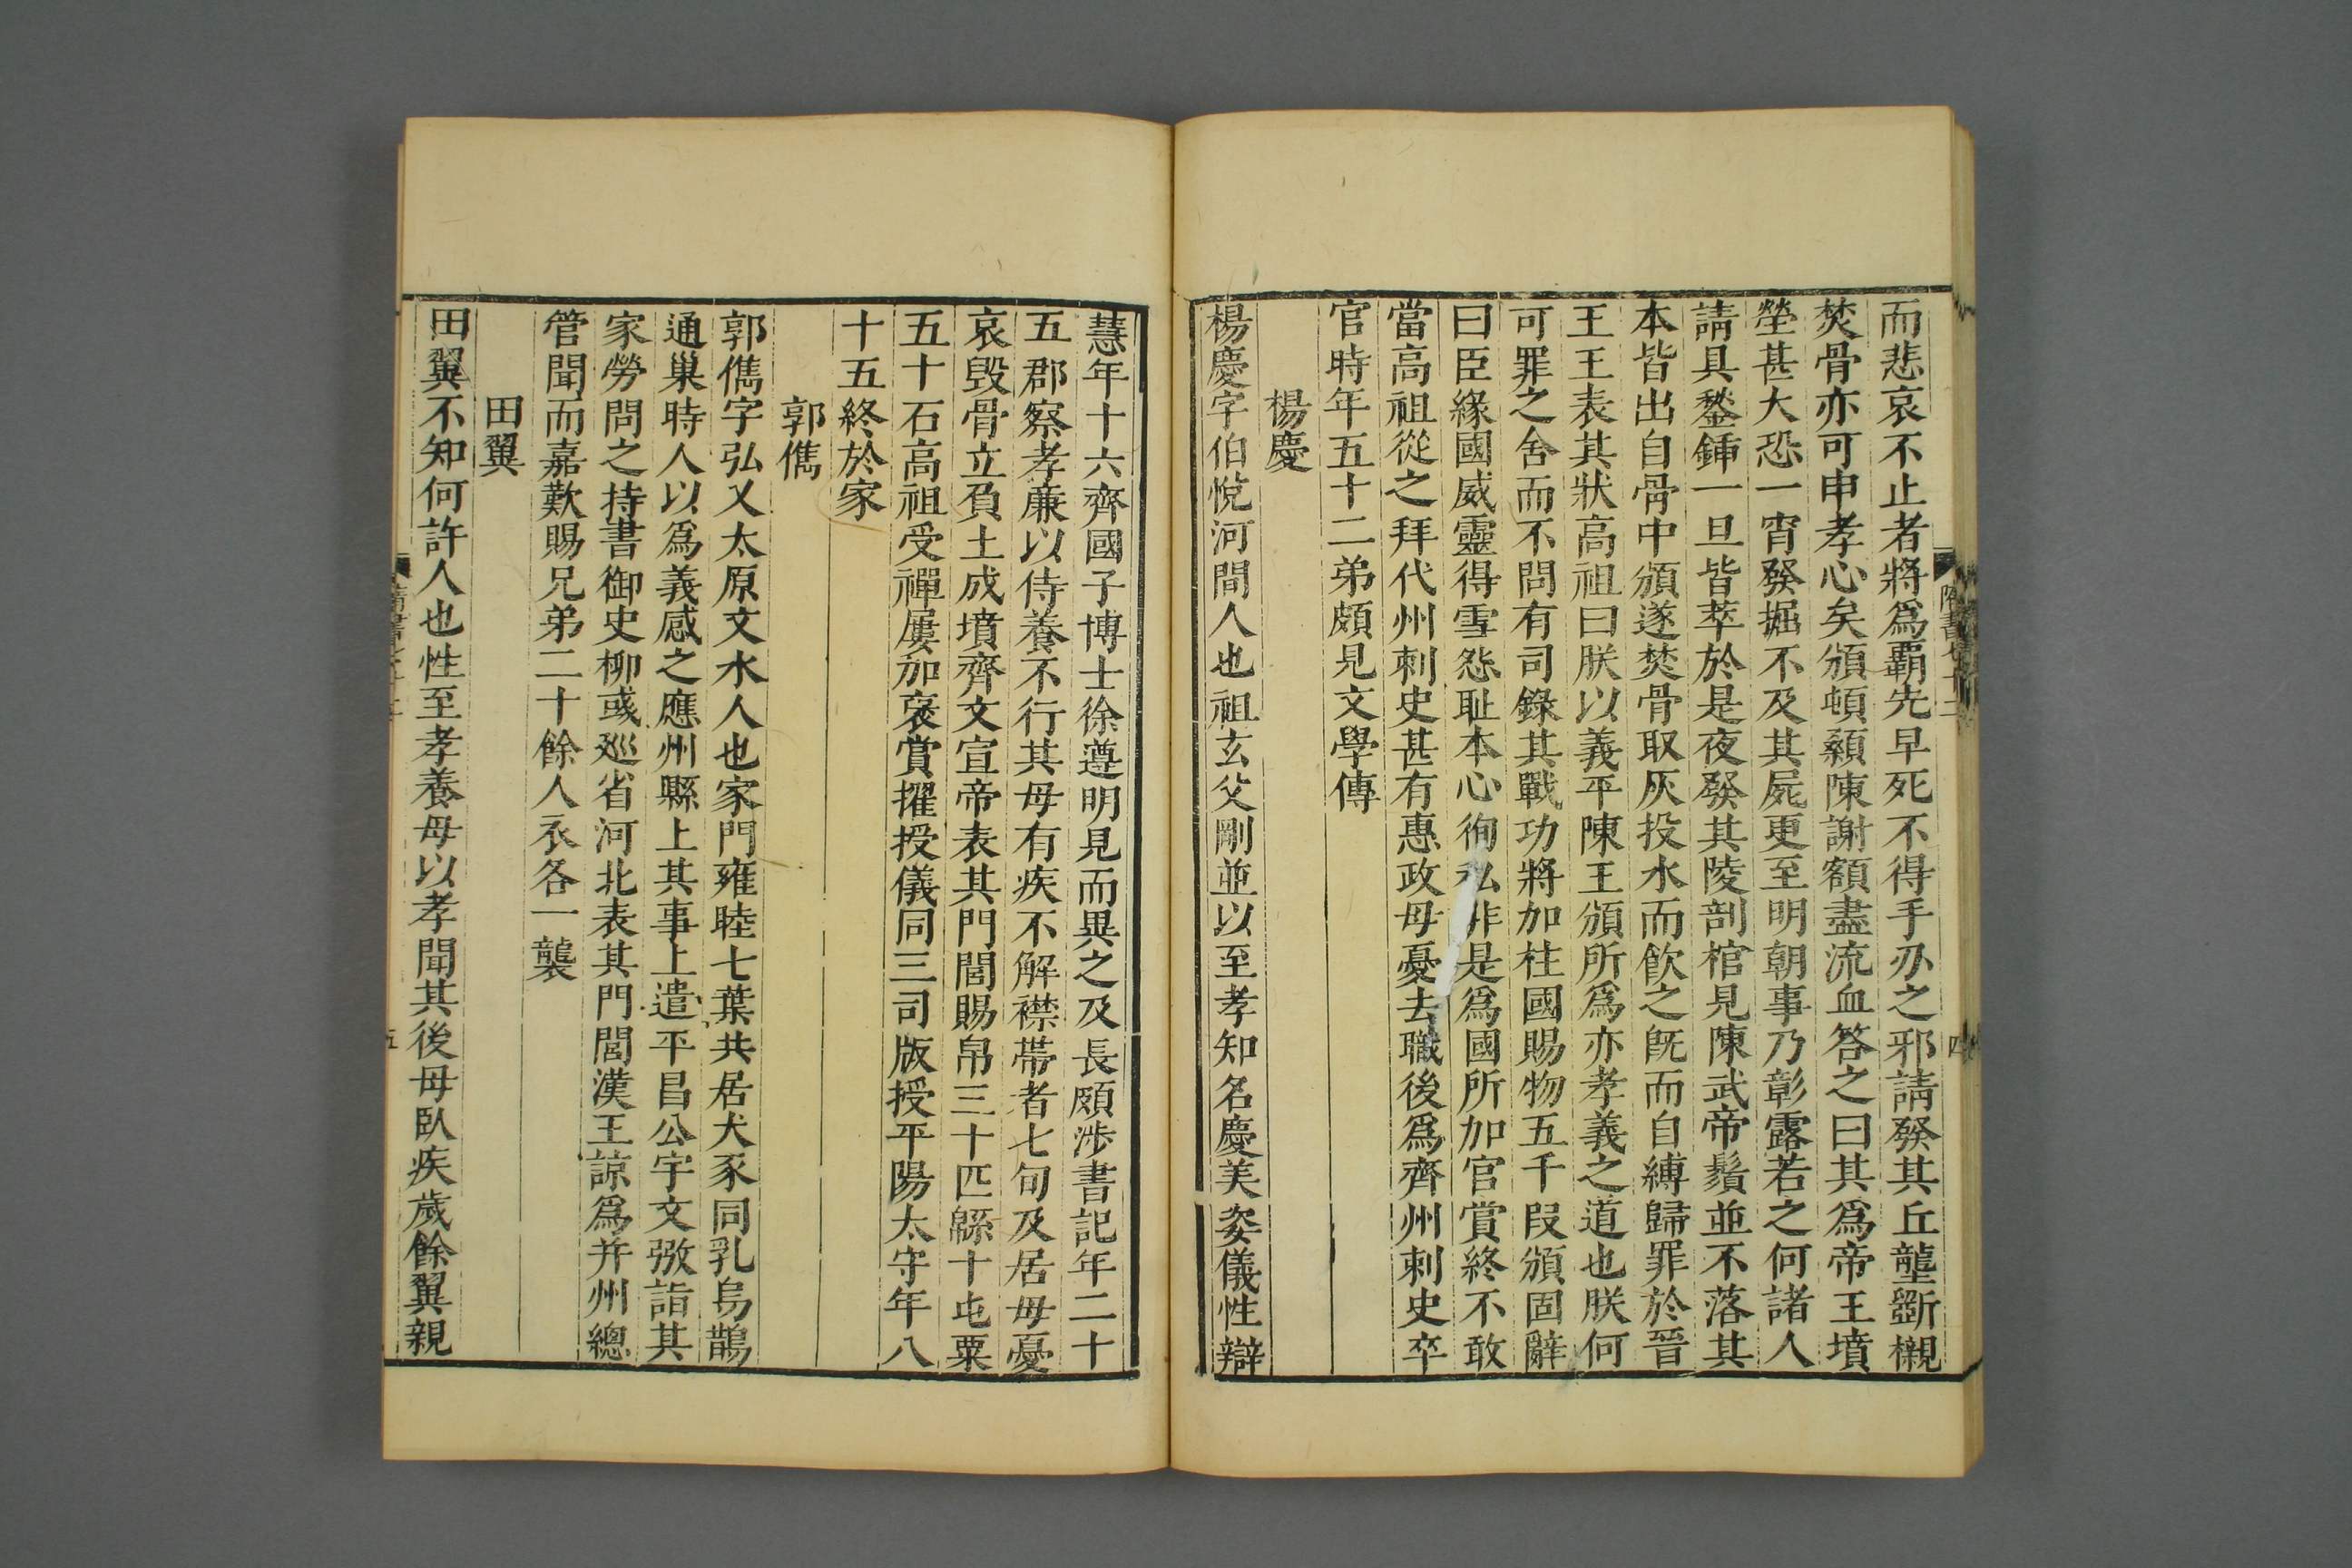 而悲哀不止者將爲霸先早死不得手刃之邪請發其丘壟斵櫬
焚骨亦可申孝心矣頒頓顙陳謝額盡流血答之曰其爲帝王墳
塋甚大恐一宵發掘不及其屍更至明朝事乃彰露若之何諸人
請具鍫鍤一旦皆萃於是夜發其陵剖棺見陳武帝鬚並不落其
本皆出自骨中頒遂焚骨取灰投水而飮之旣而自縛歸罪於晉
王王表其狀高祖曰朕以義平陳王頒所爲亦孝義之道也朕何
可罪之舍而不問有司錄其戰功將加柱國賜物五千段頒固辭
曰臣緣國威靈得雪怨耻本心徇私非是爲國所加官賞終不敢
當高祖從之拜代州刺史甚有惠政母憂去職後爲齊州刺史卒
官時年五十二弟頗見文學傳
楊慶
楊慶字伯悅河間人也祖玄父剛並以至孝知名慶美姿儀性辯
慧年十六齊國子博士徐遵明見而異之及長頗涉書記年二十
五郡察孝廉以侍養不行其母有疾不解襟帶者七旬及居母憂
哀毀骨立負土成墳齊文宣帝表其門閭賜帛三十匹緜十屯粟
五十石高祖受禪屢加褒賞擢授儀同三司版授平陽太守年八
十五終於家
郭儁
郭儁字弘乂太原文水人也家門雍睦七葉共居犬豕同乳烏鵲
通巢時人以爲義感之應州縣上其事上遣平昌公宇文㢸詣其
家勞問之持書御史柳彧廵省河北表其門閭漢王諒爲并州總
管聞而嘉歎賜兄弟二十餘人衣各一襲
田翼
田翼不知何許人也性至孝養母以孝聞其後母臥疾歲餘翼親
五